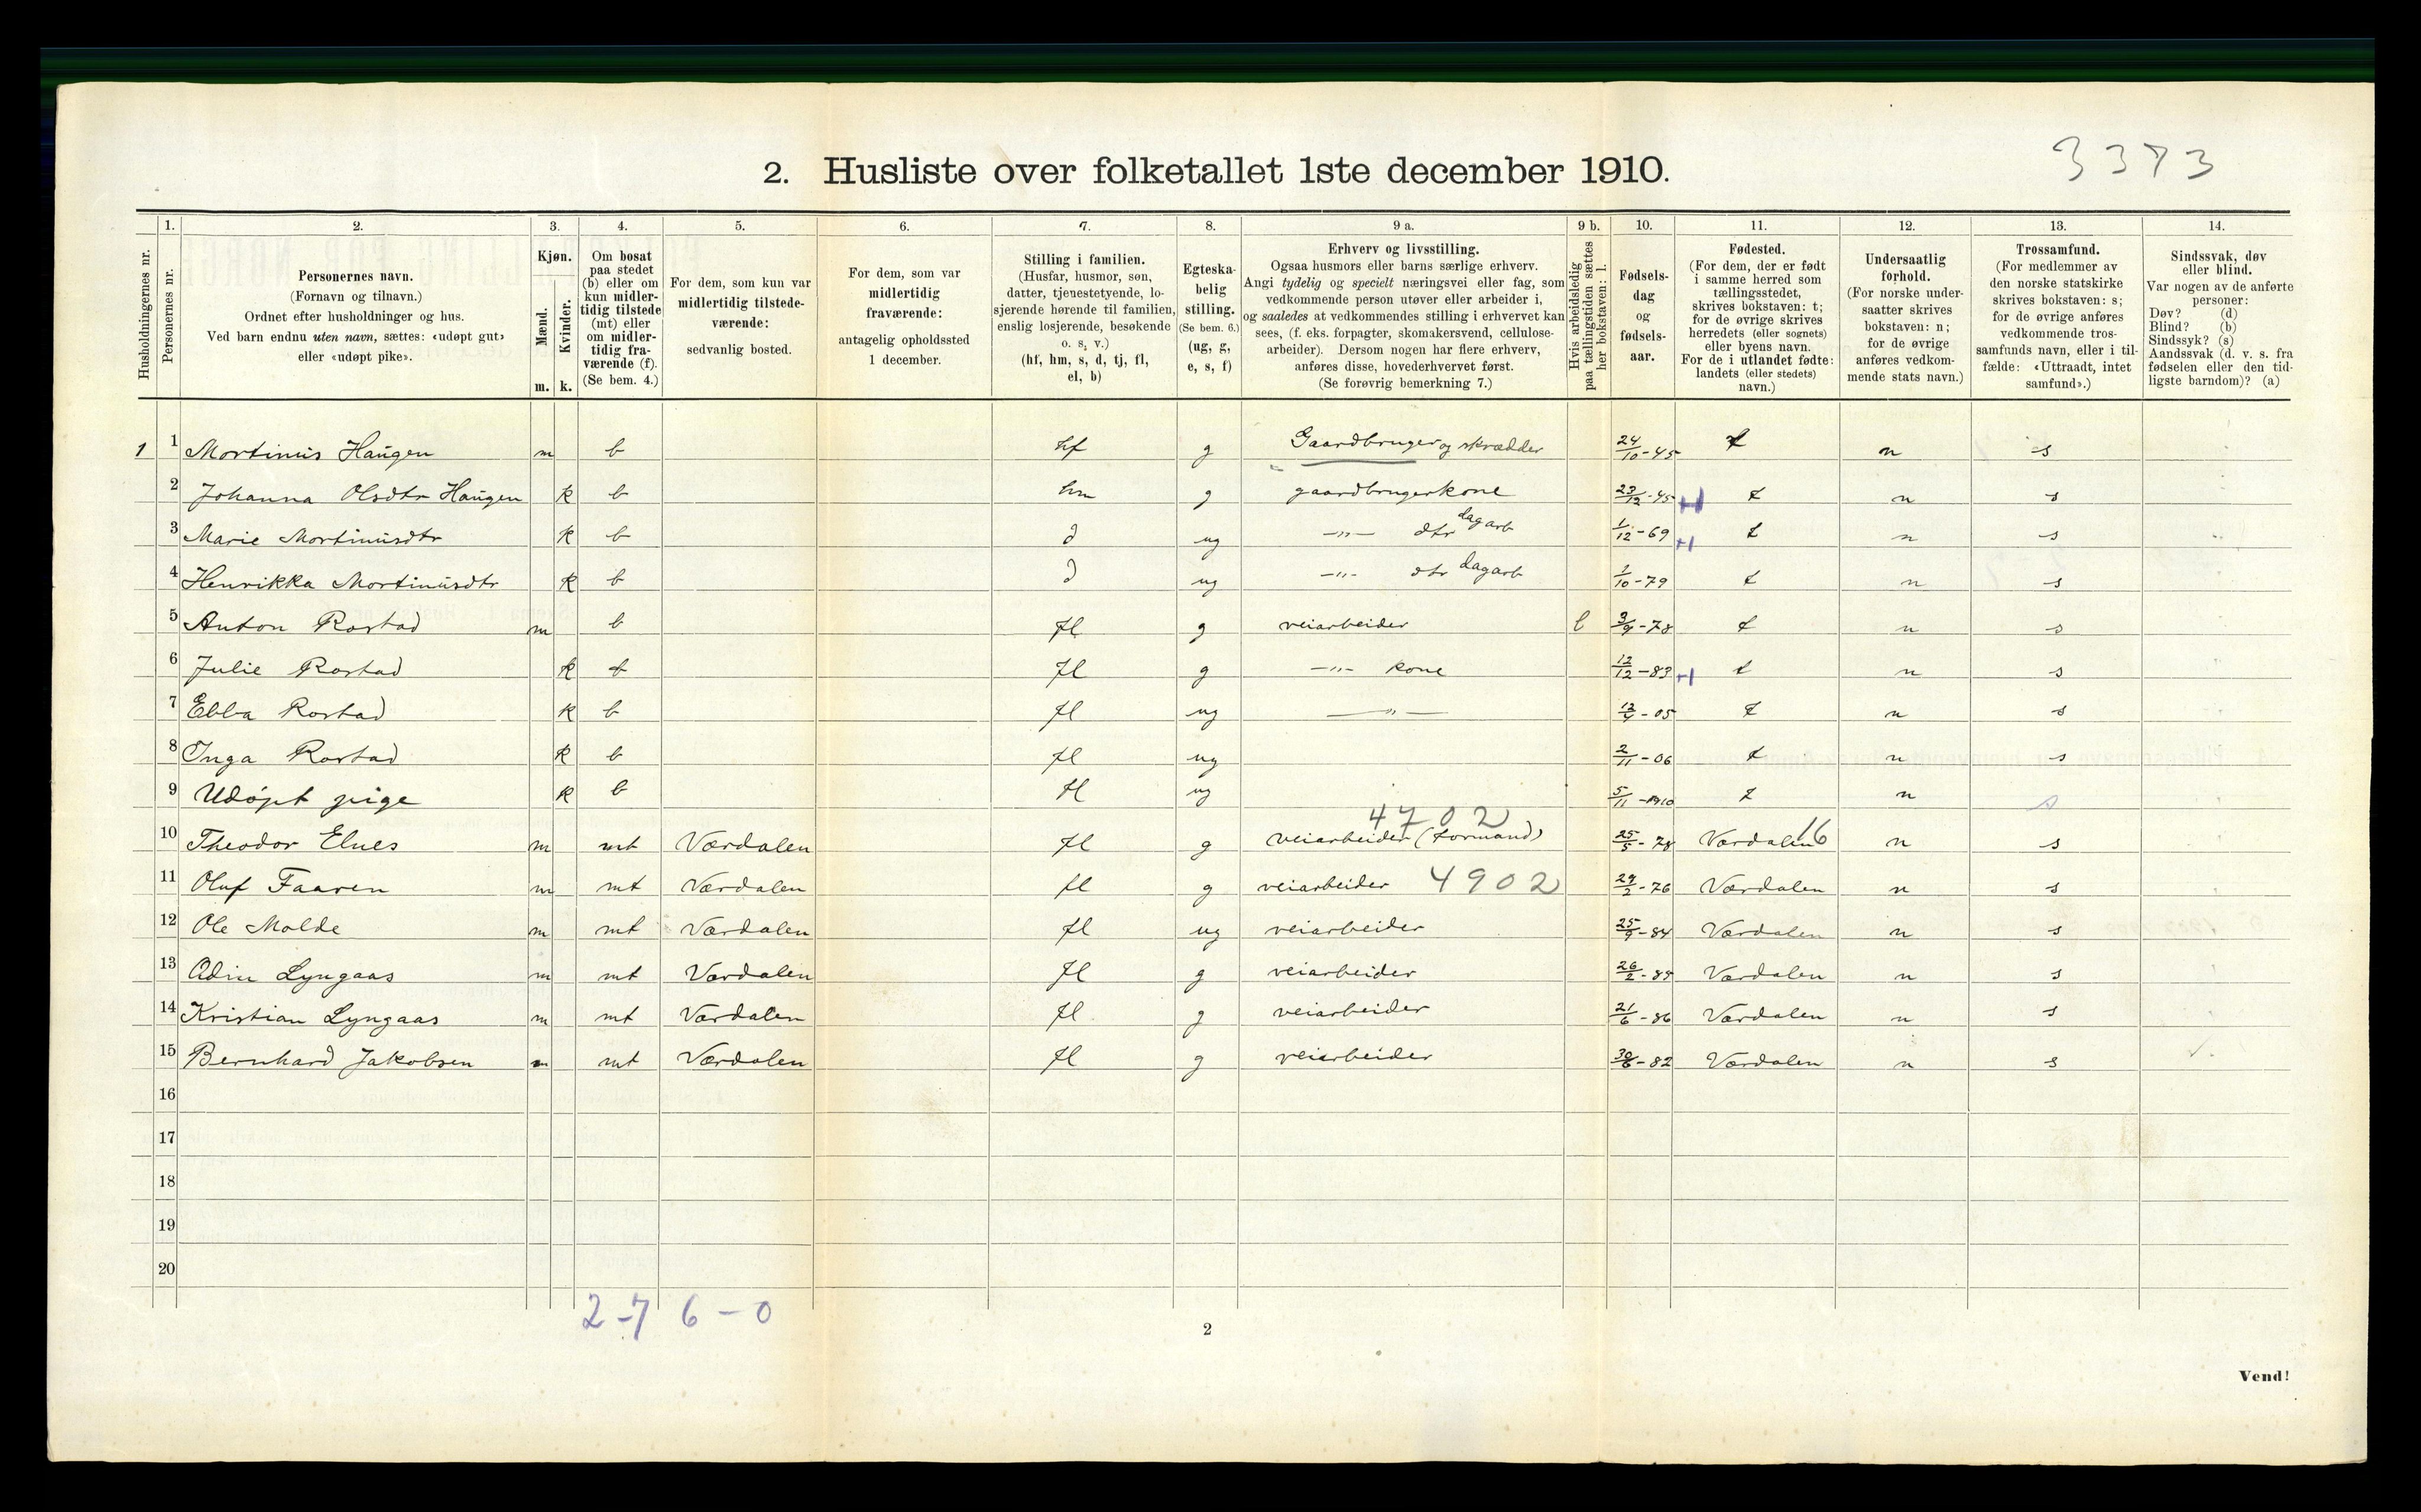 3373
2. Husliste over folketallet 1ste december 1910.
Husholdningernes nr.
1.
Personernes nr.
2.
Personernes navn.
(Fornavn og tilnavn.)
Ordnet efter husholdninger og hus.
Ved barn endnu uten navn, sættes: «udøpt gut»
eller «udøpt pike».
3.
Kjøn.
Mænd.
Kvinder.
m. k.
4.
Om bosat
paa stedet
(b) eller om
kun midler-
tidig tilstede
(mt) eller
om midler-
tidig fra-
værende (f).
(Se bem. 4.)
5.
For dem, som kun var
midlertidig tilstede-
værende:
sedvanlig bosted.
6.
For dem, som var
midlertidig
fraværende:
antagelig opholdssted
1 december.
7.
Stilling i familien.
(Husfar, husmor, søn,
datter, tjenestetyende, lo-
sjerende hørende til familien,
enslig losjerende, besøkende
o. s. v.)
(hf, hm, s, d, tj, fl,
el, b)
8.
Egteska-
belig
stilling.
(Se bem. 6.)
(ug, g,
e, s, f)
9 a.
Erhverv og livsstilling.
Ogsaa husmors eller barns særlige erhverv.
Angi tydelig og specielt næringsvei eller fag, som
vedkommende person utøver eller arbeider i,
og saaledes at vedkommendes stilling i erhvervet kan
sees, (f. eks. forpagter, skomakersvend, cellulose-
arbeider). Dersom nogen har flere erhverv,
anføres disse, hovederhvervet først.
(Se forøvrig bemerkning 7.)
9 b.
Hvis arbeidsledig
paa tællingstiden sættes
her bokstaven: l.
10.
Fødsels-
dag
og
fødsels-
aar.
11.
Fødested.
(For dem, der er født
i samme herred som
tællingsstedet,
skrives bokstaven: t;
for de øvrige skrives
herredets (eller sognets)
eller byens navn.
For de i utlandet fødte:
landets (eller stedets)
navn.)
12.
Undersaatlig
forhold.
(For norske under-
saatter skrives
bokstaven: n;
for de øvrige
anføres vedkom-
mende stats navn.)
13.
Trossamfund.
(For medlemmer av
den norske statskirke
skrives bokstaven: s;
for de øvrige anføres
vedkommende tros-
samfunds navn, eller i til-
fælde: «Uttraadt, intet
samfund».)
14.
Sindssvak, døv
eller blind.
Var nogen av de anførte
personer:
Døv? (d)
Blind? (b)
Sindssyk? (s)
Aandssvak (d. v. s. fra
fødselen eller den tid-
ligste barndom)? (a)
1 1 Mortinus Haugen m b hf g Gaardbruger og skrædder 24/10-45 t n s
2 Johanna Olsdtr Haugen k b hm g gaardbrugerkone 23/12-45 +1 t n s
3 Marie Mortinusdtr k b d ug —"— dtr dagarb 1/12-69 +1 t n s
4 Henrikka Mortinusdtr k b d ug —"— dtr dagarb 1/10-79 t n s
5 Anton Rostad m b fl g veiarbeider l 3/9-78 t n s
6 Julie Rostad k b fl g —"— kone 12/12-83 +1 t n s
7 Ebba Rostad k b fl ug —"— 12/4-05 t n s
8 Inga Rostad k b fl ug 2/11-06 t n s
9 Udøpt pige k b fl ug 5/11-1910 t n s
4702
10 Theodor Elnes m mt Værdalen fl g veiarbeider (formand) 25/5-78 Værdalen 16 n s
11 Oluf Faaren m mt Værdalen fl g veiarbeider 4902 29/2-76 Værdalen n s
12 Ole Molde m mt Værdalen fl ug veiarbeider 25/9-84 Værdalen n s
13 Odin Lyngaas m mt Værdalen fl g veiarbeider 26/2-89 Værdalen n s
14 Kristian Lyngaas m mt Værdalen fl g veiarbeider 21/6-86 Værdalen n s
15 Bernhard Jakobsen m mt Værdalen fl g veiarbeider 30/6-82 Værdalen n s
16
17
18
19
20
2-7 6-0
2
Vend!